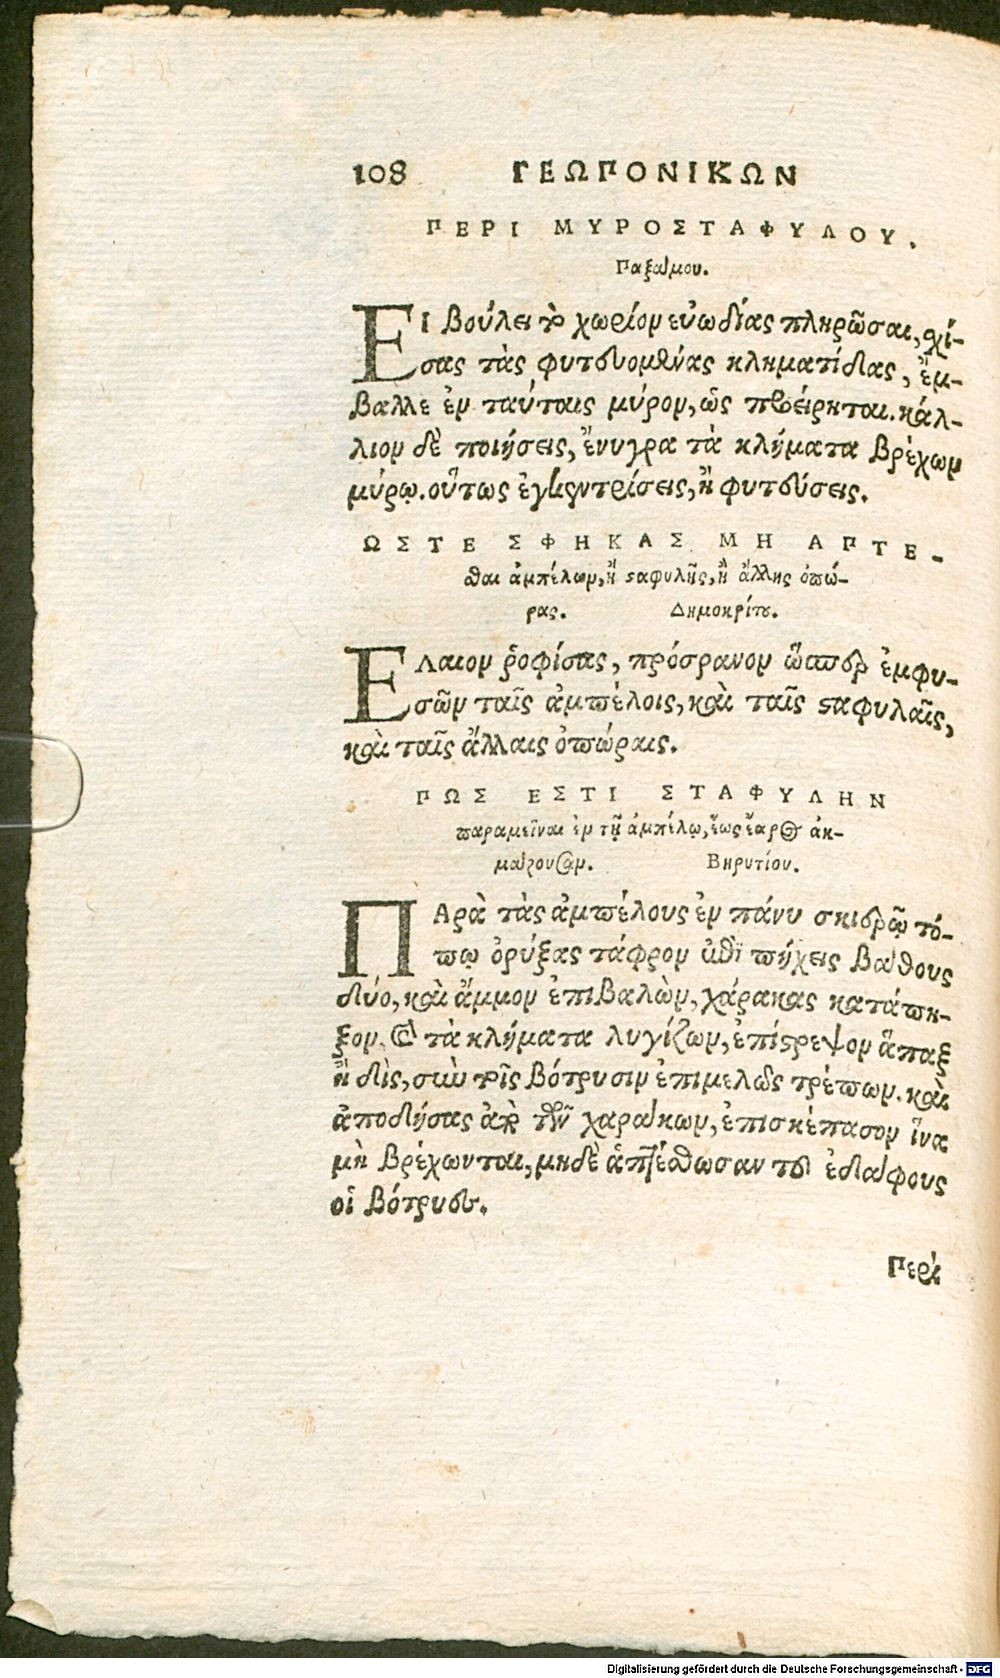 108 ΓΕΩΠΟΝΙΚΩΝ
ΠΕΡΙ ΜΥΡΟΣΤΑΦΥΛΟΥ.
Παξάμου.
ΕΙ βούλει τὸ χωρίον εὐωδίας πληρῶσαι, σχί-
σας τὰς φυτευομένας κληματίδας, ἔμ-
βαλλε ἐν ταύταις μύρον, ὡς προείρηται. κάλ-
λιον δὲ ποιήσεις, ἔνυγρα τὰ κλήματα βρέχων
μύρῳ. οὕτως ἐγκεντρίσεις, ἢ φυτεύσεις.
ΩΣΤΕ ΣΦΗΚΑΣ ΜΗ ΑΠΤΕ-
σθαι ἀμπέλων, ἢ σταφυλῆς, ἢ ἄλλης ὀπώ-
ρας. Δημοκρίτου.
ΕΛαιον ῥοφίσας, πρόσρανον ὥσπερ ἐμφυ-
σῶν ταῖς ἀμπέλοις, καὶ ταῖς σταφυλαῖς,
καὶ ταῖς ἄλλαις ὀπώραις.
ΠΩΣ ΕΣΤΙ ΣΤΑΦΥΛΗΝ
παραμεῖναι ἐν τῇ ἀμπέλῳ, ἕως ἔαρος ἀκ-
μάζουσαν. Βηρυτίου.
ΠΑρὰ τὰς ἀμπέλους ἐν πάνυ σκιερῷ τό-
πῳ ὀρύξας τάφρον ἐπὶ πήχεις βάθους
δύο, καὶ ἄμμον ἐπιβαλὼν, χάρακας κατάπη-
ξον. καὶ τὰ κλήματα λυγίζων, ἐπίστρεψον ἅπαξ
ἢ δὶς, σὺν τοῖς βότρυσιν ἐπιμελῶς τρέπων. καὶ
ἀποδήσας ἀπὸ τῶν χαράκων, ἐπισκέπασον ἵνα
μὴ βρέχωνται, μηδὲ ἁπτέσθωσαν τοῦ ἐδάφους
οἱ βότρυες.
Περὶ
Digitalisierung gefördert durch die Deutsche Forschungsgemeinschaft - DFG